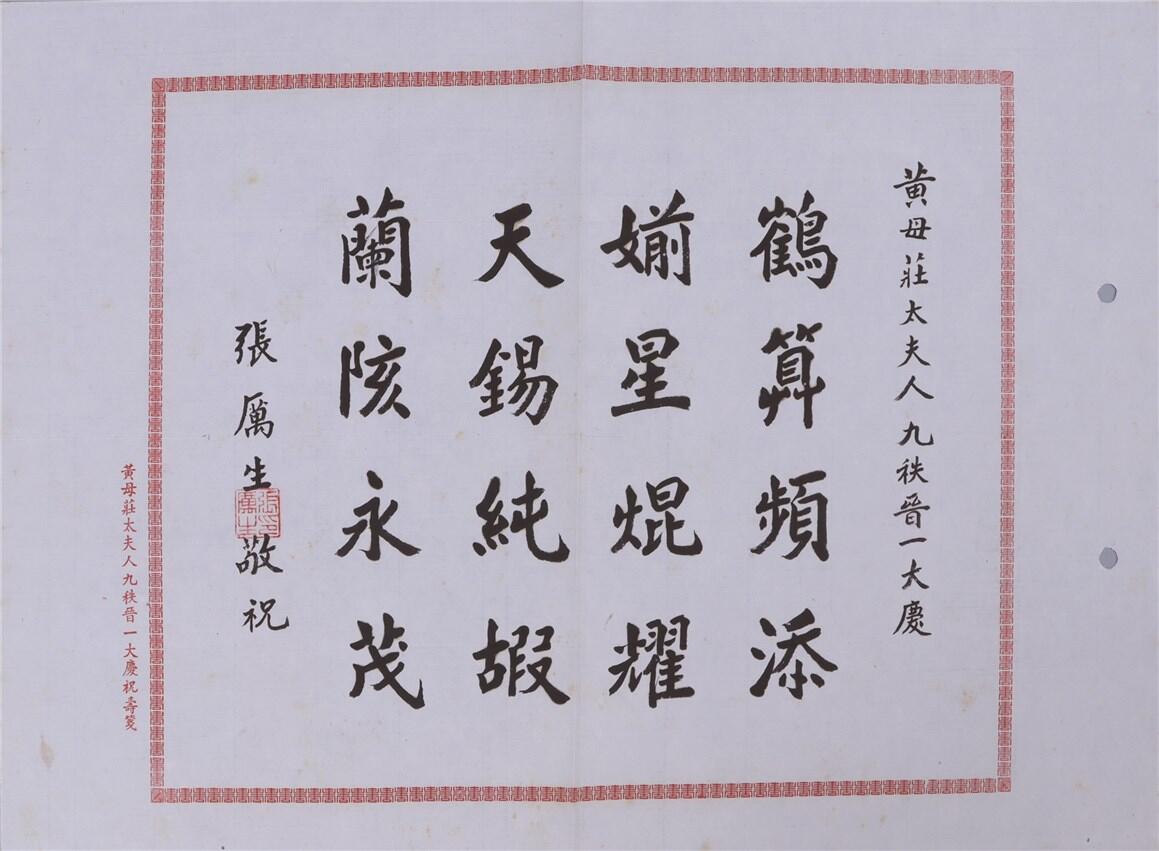 黃母莊太夫人九秩晉一大慶
鶴算頻添
媊星焜耀
天錫純嘏
蘭陔永茂
張厲生敬祝
張厲生印
黃母莊太夫人九秩晉一大慶祝壽箋